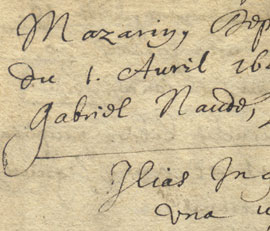 Mazarin, Sep
du 1. Avril 164
Gabriel Naudé,
Ilias In
vna